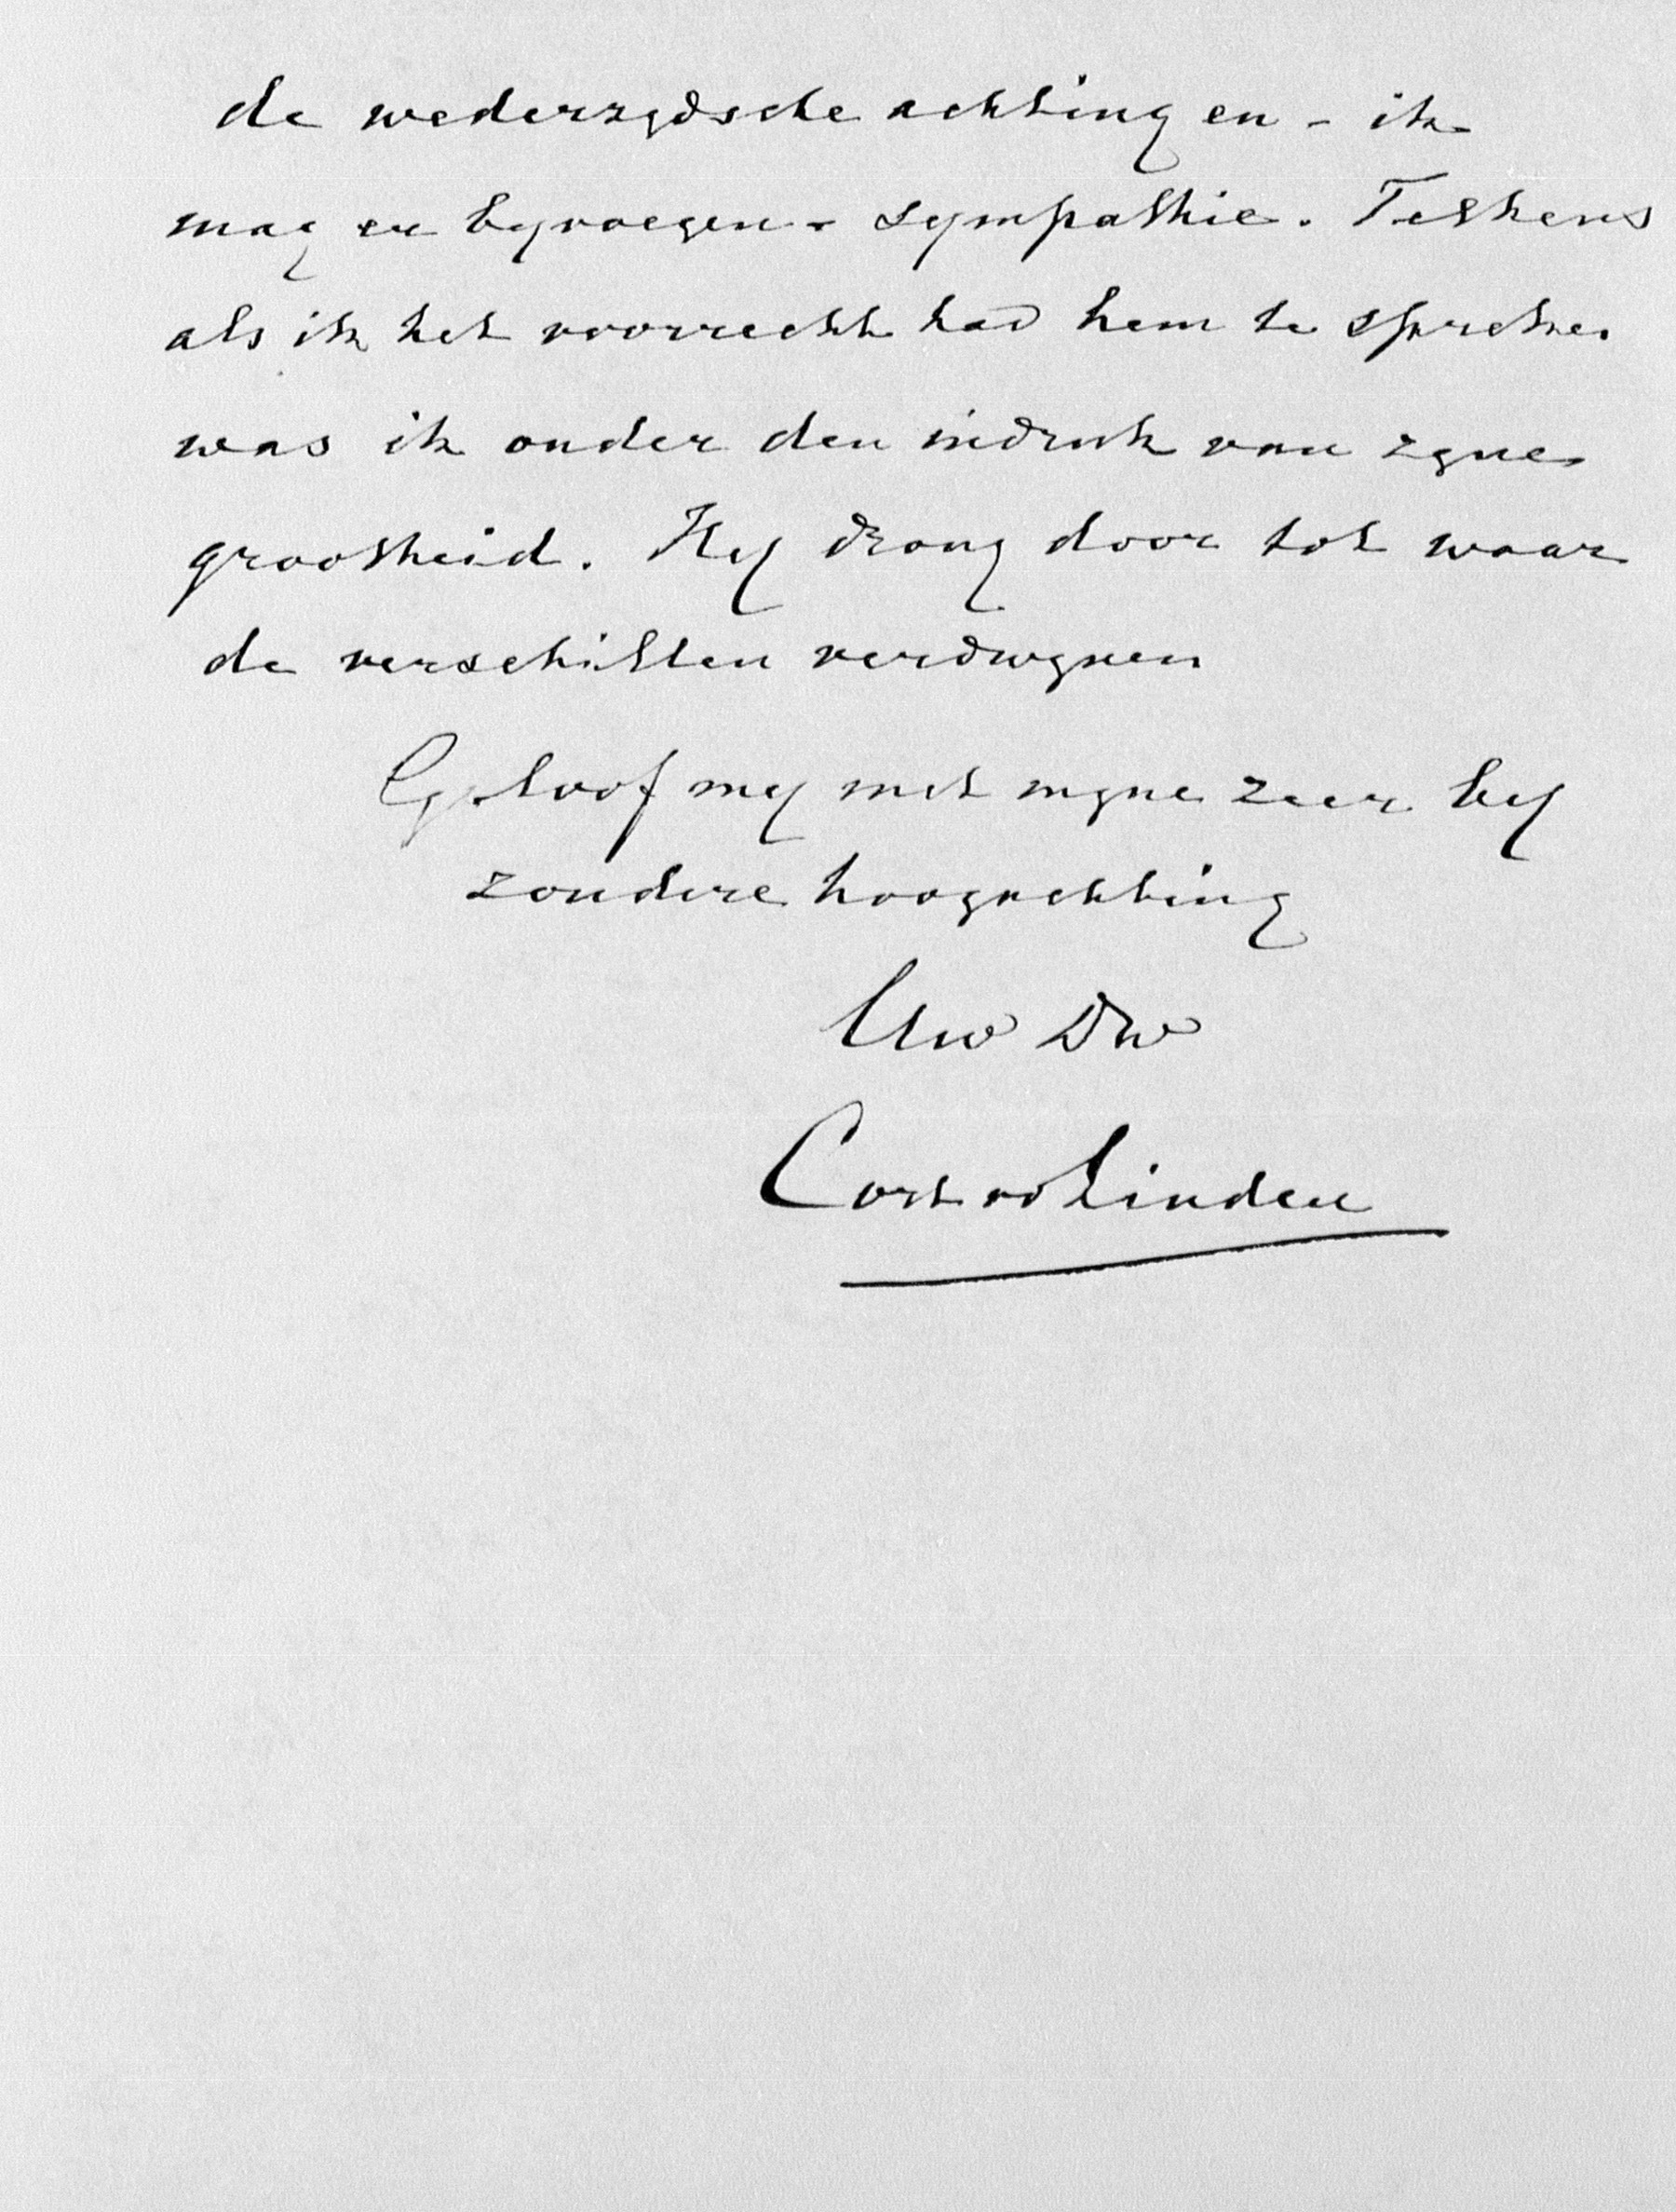 de wederzydsche achting en - ik
mag er byvoegen - sympathie. Telkens
als ik het voorrecht had hem te spreken
was ik onder den indruk van zyne
grootheid. Hy drong door tot waar
de verschillen verdwynen
Geloof my met myne zeer by
zondere hoogachting
Uw Dw
Cort vd Linden